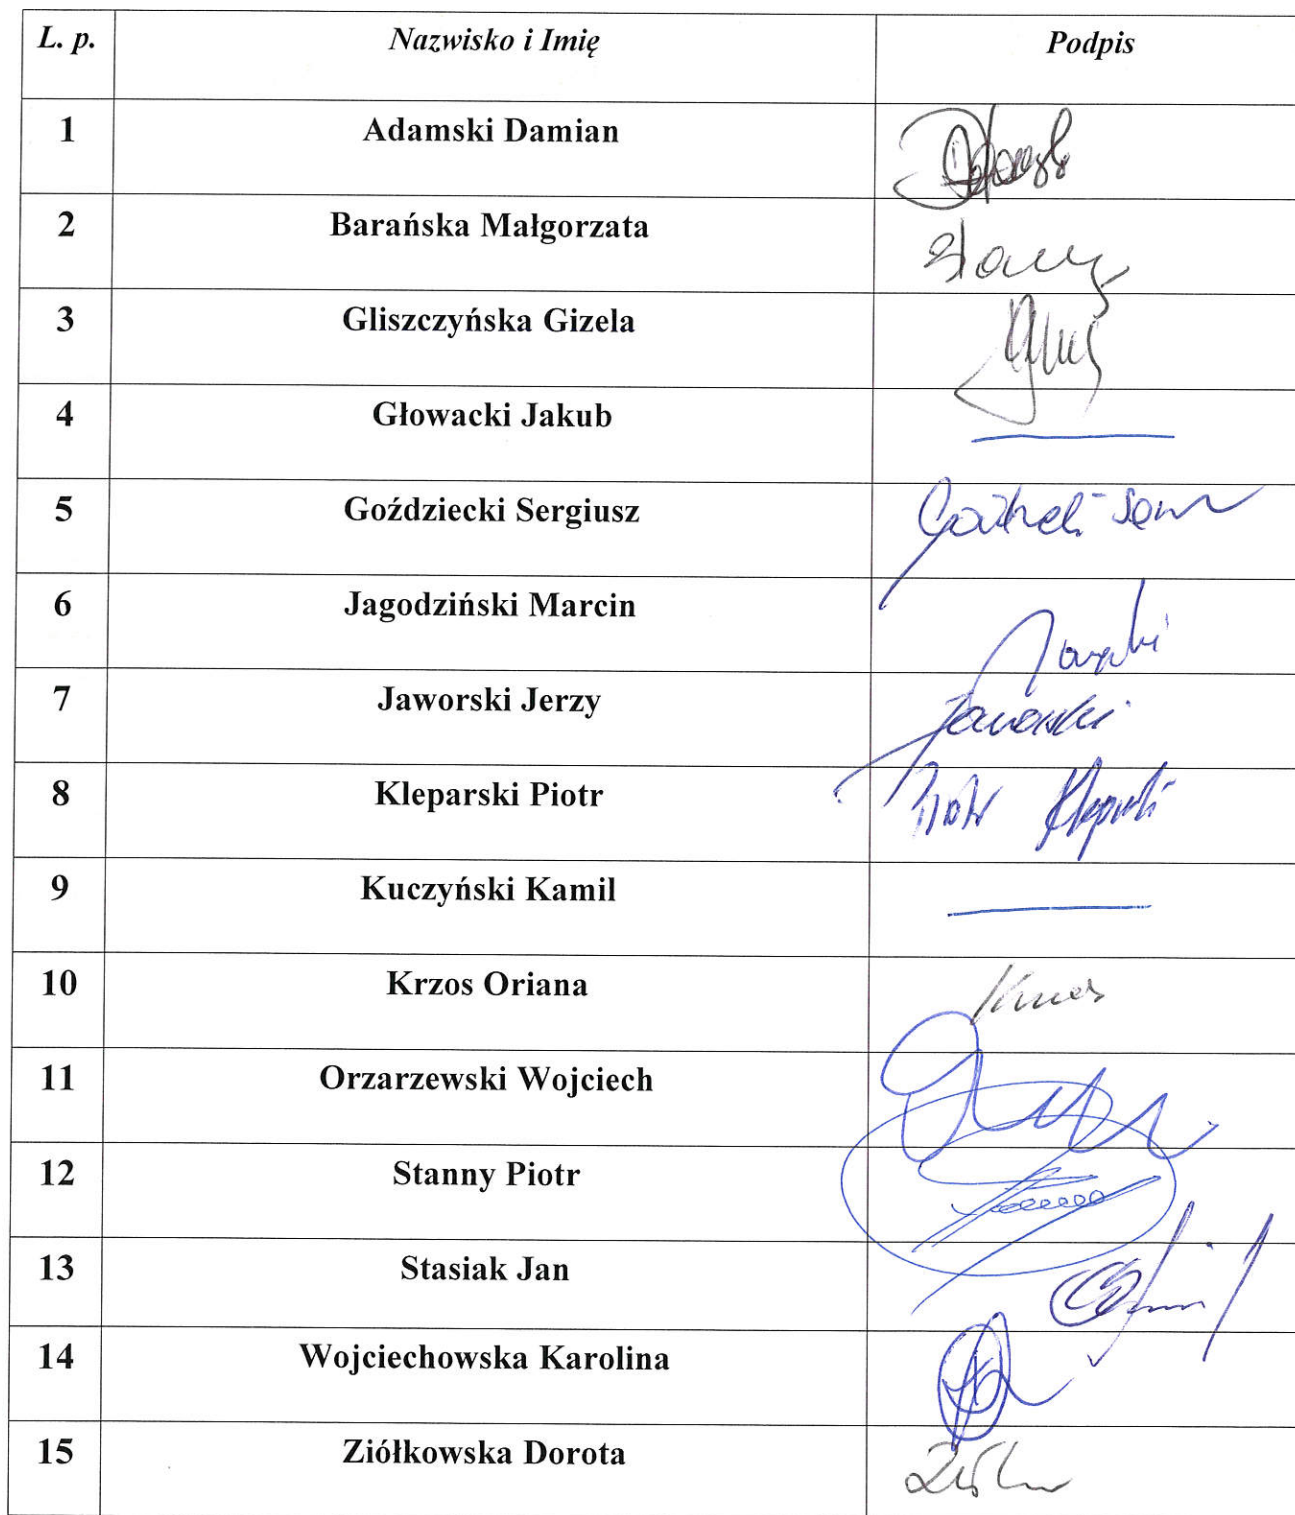 L. p. Nazwisko i Imię Podpis
1 Adamski Damian
2 Barańska Małgorzata
3 Gliszczyńska Gizela
4 Głowacki Jakub
5 Goździecki Sergiusz
6 Jagodziński Marcin
7 Jaworski Jerzy Jaworski
8 Kleparski Piotr Piotr Kleparski
9 Kuczyński Kamil
10 Krzos Oriana
11 Orzarzewski Wojciech
12 Stanny Piotr
13 Stasiak Jan
14 Wojciechowska Karolina
15 Ziółkowska Dorota